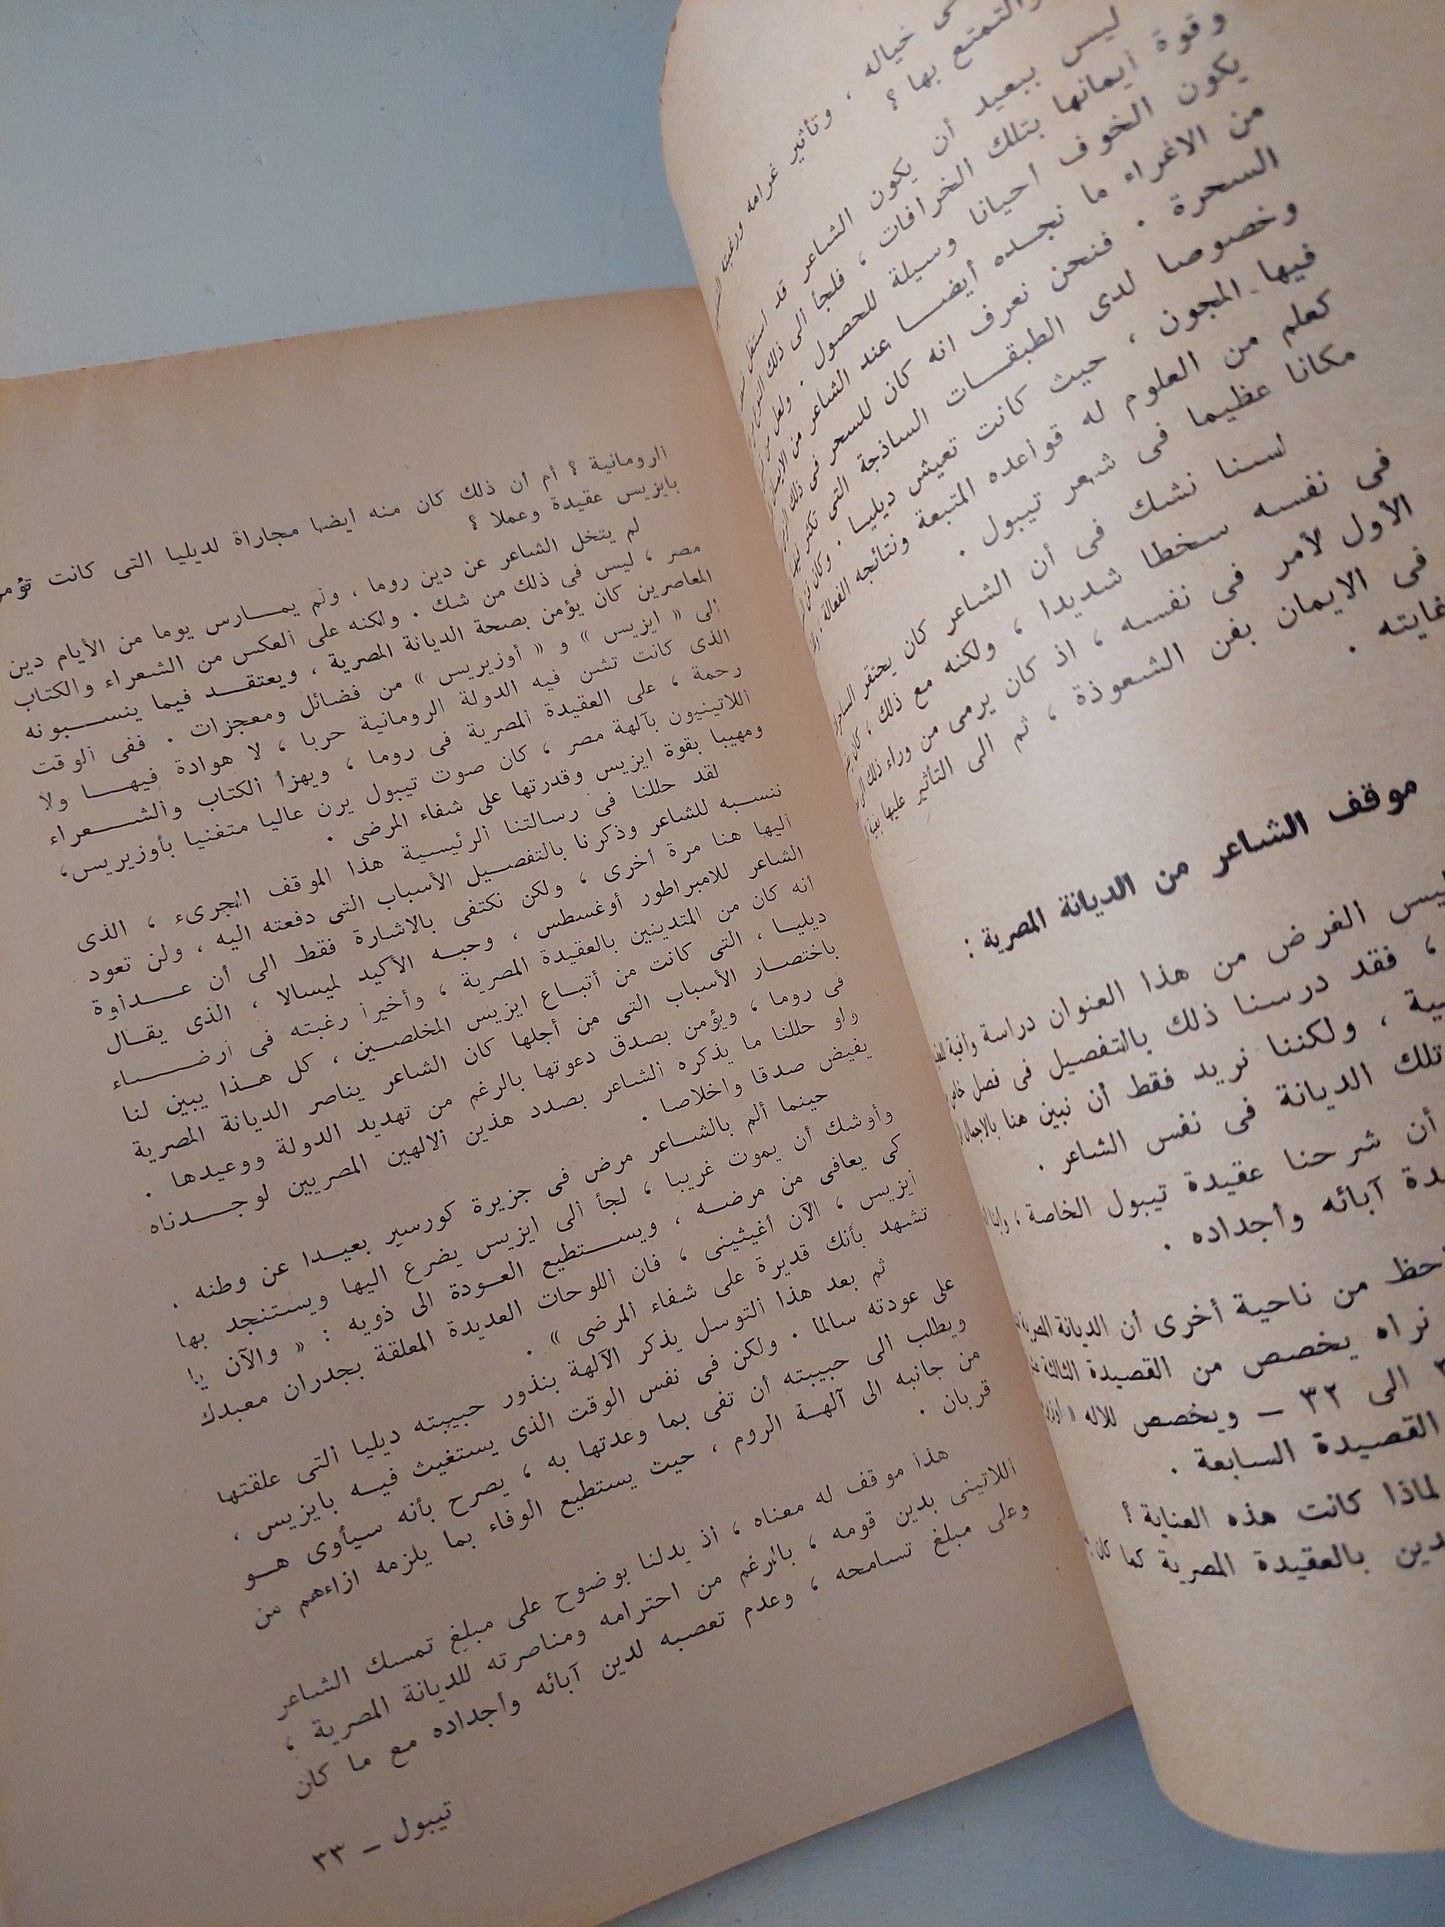 خياله ، وتأثير غرامه ورغبته
والتمتع بها ؟
ليس ببعيد أن يكون الشاعر قد استغل
وقوة أيمانها بتلك الخرافات ، فلجأ الى ذلك
يكون الخوف أحيانا وسيلة للحصول . ولعل
من الاغراء ما نجده أيضا عند الشاعر من
السحرة . فنحن نعرف انه كان للسحر فى ذلك
وخصوصا لدى الطبقات الساذجة التى تكثر
فيها المجون ، حيث كانت تعيش ديليا . وكان
كعلم من العلوم له قواعده المتبعة ونتائجه الفعالة
مكانا عظيما فى شعر تيبول .
لسنا نشك فى أن الشاعر كان يحتقر
فى نفسه سخطا شديدا ، ولكنه مع ذلك ، كان
الأول لأمر فى نفسه ، اذ كان يرمى من وراء ذلك
فى الايمان بفن الشعوذة ، ثم الى التأثير عليها
غايته .
موقف الشاعر من الديانة المصرية :
ليس الغرض من هذا العنوان دراسة وافية
، فقد درسنا ذلك بالتفصيل فى فصل خاص
ية ، ولكننا نريد فقط أن نبين هنا بالاجمال
تلك الديانة فى نفس الشاعر .
أن شرحنا عقيدة تيبول الخاصة ،
دة آبائه وأجداده .
حظ من ناحية أخرى أن الديانة المصرية
نراه يخصص من القصيدة الثالثة
الى ٣٢ – ويخصص للاله «
القصيدة السابعة .
لماذا كانت هذه العناية ؟
دين بالعقيدة المصرية كما كان
الرومانية ؟ أم أن ذلك كان منه ايضا مجاراة لديليا التى كانت تؤمن
بايزيس عقيدة وعملا ؟
لم يتخل الشاعر عن دين روما ، ولم يمارس يوما من الأيام دين
مصر ، ليس فى ذلك من شك . ولكنه على العكس من الشعراء والكتاب
المعاصرين كان يؤمن بصحة الديانة المصرية ، ويعتقد فيما ينسبونه
الى « ايزيس » و « أوزيريس » من فضائل ومعجزات . ففى الوقت
الذى كانت تشن فيه الدولة الرومانية حربا ، لا هوادة فيها ولا
رحمة ، على العقيدة المصرية فى روما ، ويهزأ الكتاب والشعراء
اللاتينيون بآلهة مصر ، كان صوت تيبول يرن عاليا متغنيا بأوزيريس،
ومهيبا بقوة ايزيس وقدرتها على شفاء المرضى .
لقد حللنا فى رسالتنا الرئيسية هذا الموقف الجرىء ، الذى
ننسبه للشاعر وذكرنا بالتفصيل الأسباب التى دفعته اليه ، ولن تعود
اليها هنا مرة أخرى ، ولكن نكتفى بالاشارة فقط الى أن عداوة
الشاعر للامبراطور أوغسطس ، وحبه الأكيد لميسالا ، الذى يقال
أنه كان من المتدينين بالعقيدة المصرية ، وأخيرا رغبته فى ارضاء
ديليا ، التى كانت من أتباع ايزيس المخلصين ، كل هذا يبين لنا
باختصار الأسباب التى من أجلها كان الشاعر يناصر الديانة المصرية
فى روما ، ويؤمن بصدق دعوتها بالرغم من تهديد الدولة ووعيدها .
ولو حللنا ما يذكره الشاعر بصدد هذين الالهين المصريين لوجدناه
يفيض صدقا واخلاصا .
حينما ألم بالشاعر مرض فى جزيرة كورسير بعيدا عن وطنه .
وأوشك أن يموت غريبا ، لجأ الى ايزيس يضرع اليها ويستنجد بها
كى يعافى من مرضه ، ويستطيع العودة الى ذويه : « والآن يا
ايزيس ، الآن أغيثينى ، فان اللوحات العديدة المعلقة بجدران معبدك
تشهد بأنك قديرة على شفاء المرضى » .
ثم بعد هذا التوسل يذكر الآلهة بنذور حبيبته ديليا التى علقتها
على عودته سالما . ولكن فى نفس الوقت الذى يستغيث فيه بايزيس ،
ويطلب الى حبيبته أن تفى بما وعدتها به ، يصرح بأنه سيأوى هو
من جانبه الى آلهة الروم ، حيث يستطيع الوفاء بما يلزمه ازاءهم من
قربان .
هذا موقف له معناه ، اذ يدلنا بوضوح على مبلغ تمسك الشاعر
اللاتينى بدين قومه ، بالرغم من احترامه ومناصرته للديانة المصرية ،
وعلى مبلغ تسامحه ، وعدم تعصبه لدين آبائه وأجداده مع ما كان
تيبول – ٣٣